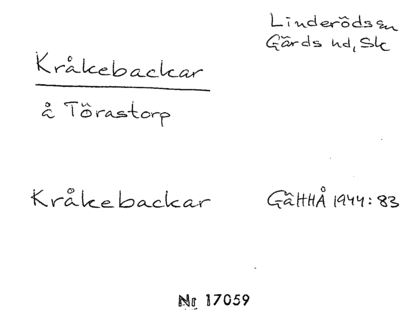 Linderöds sn
Gärds hd, Sk
Kråkebackar
å Törastorp
Kråkebackar
GäHHÅ 1944: 83
Nr 17059